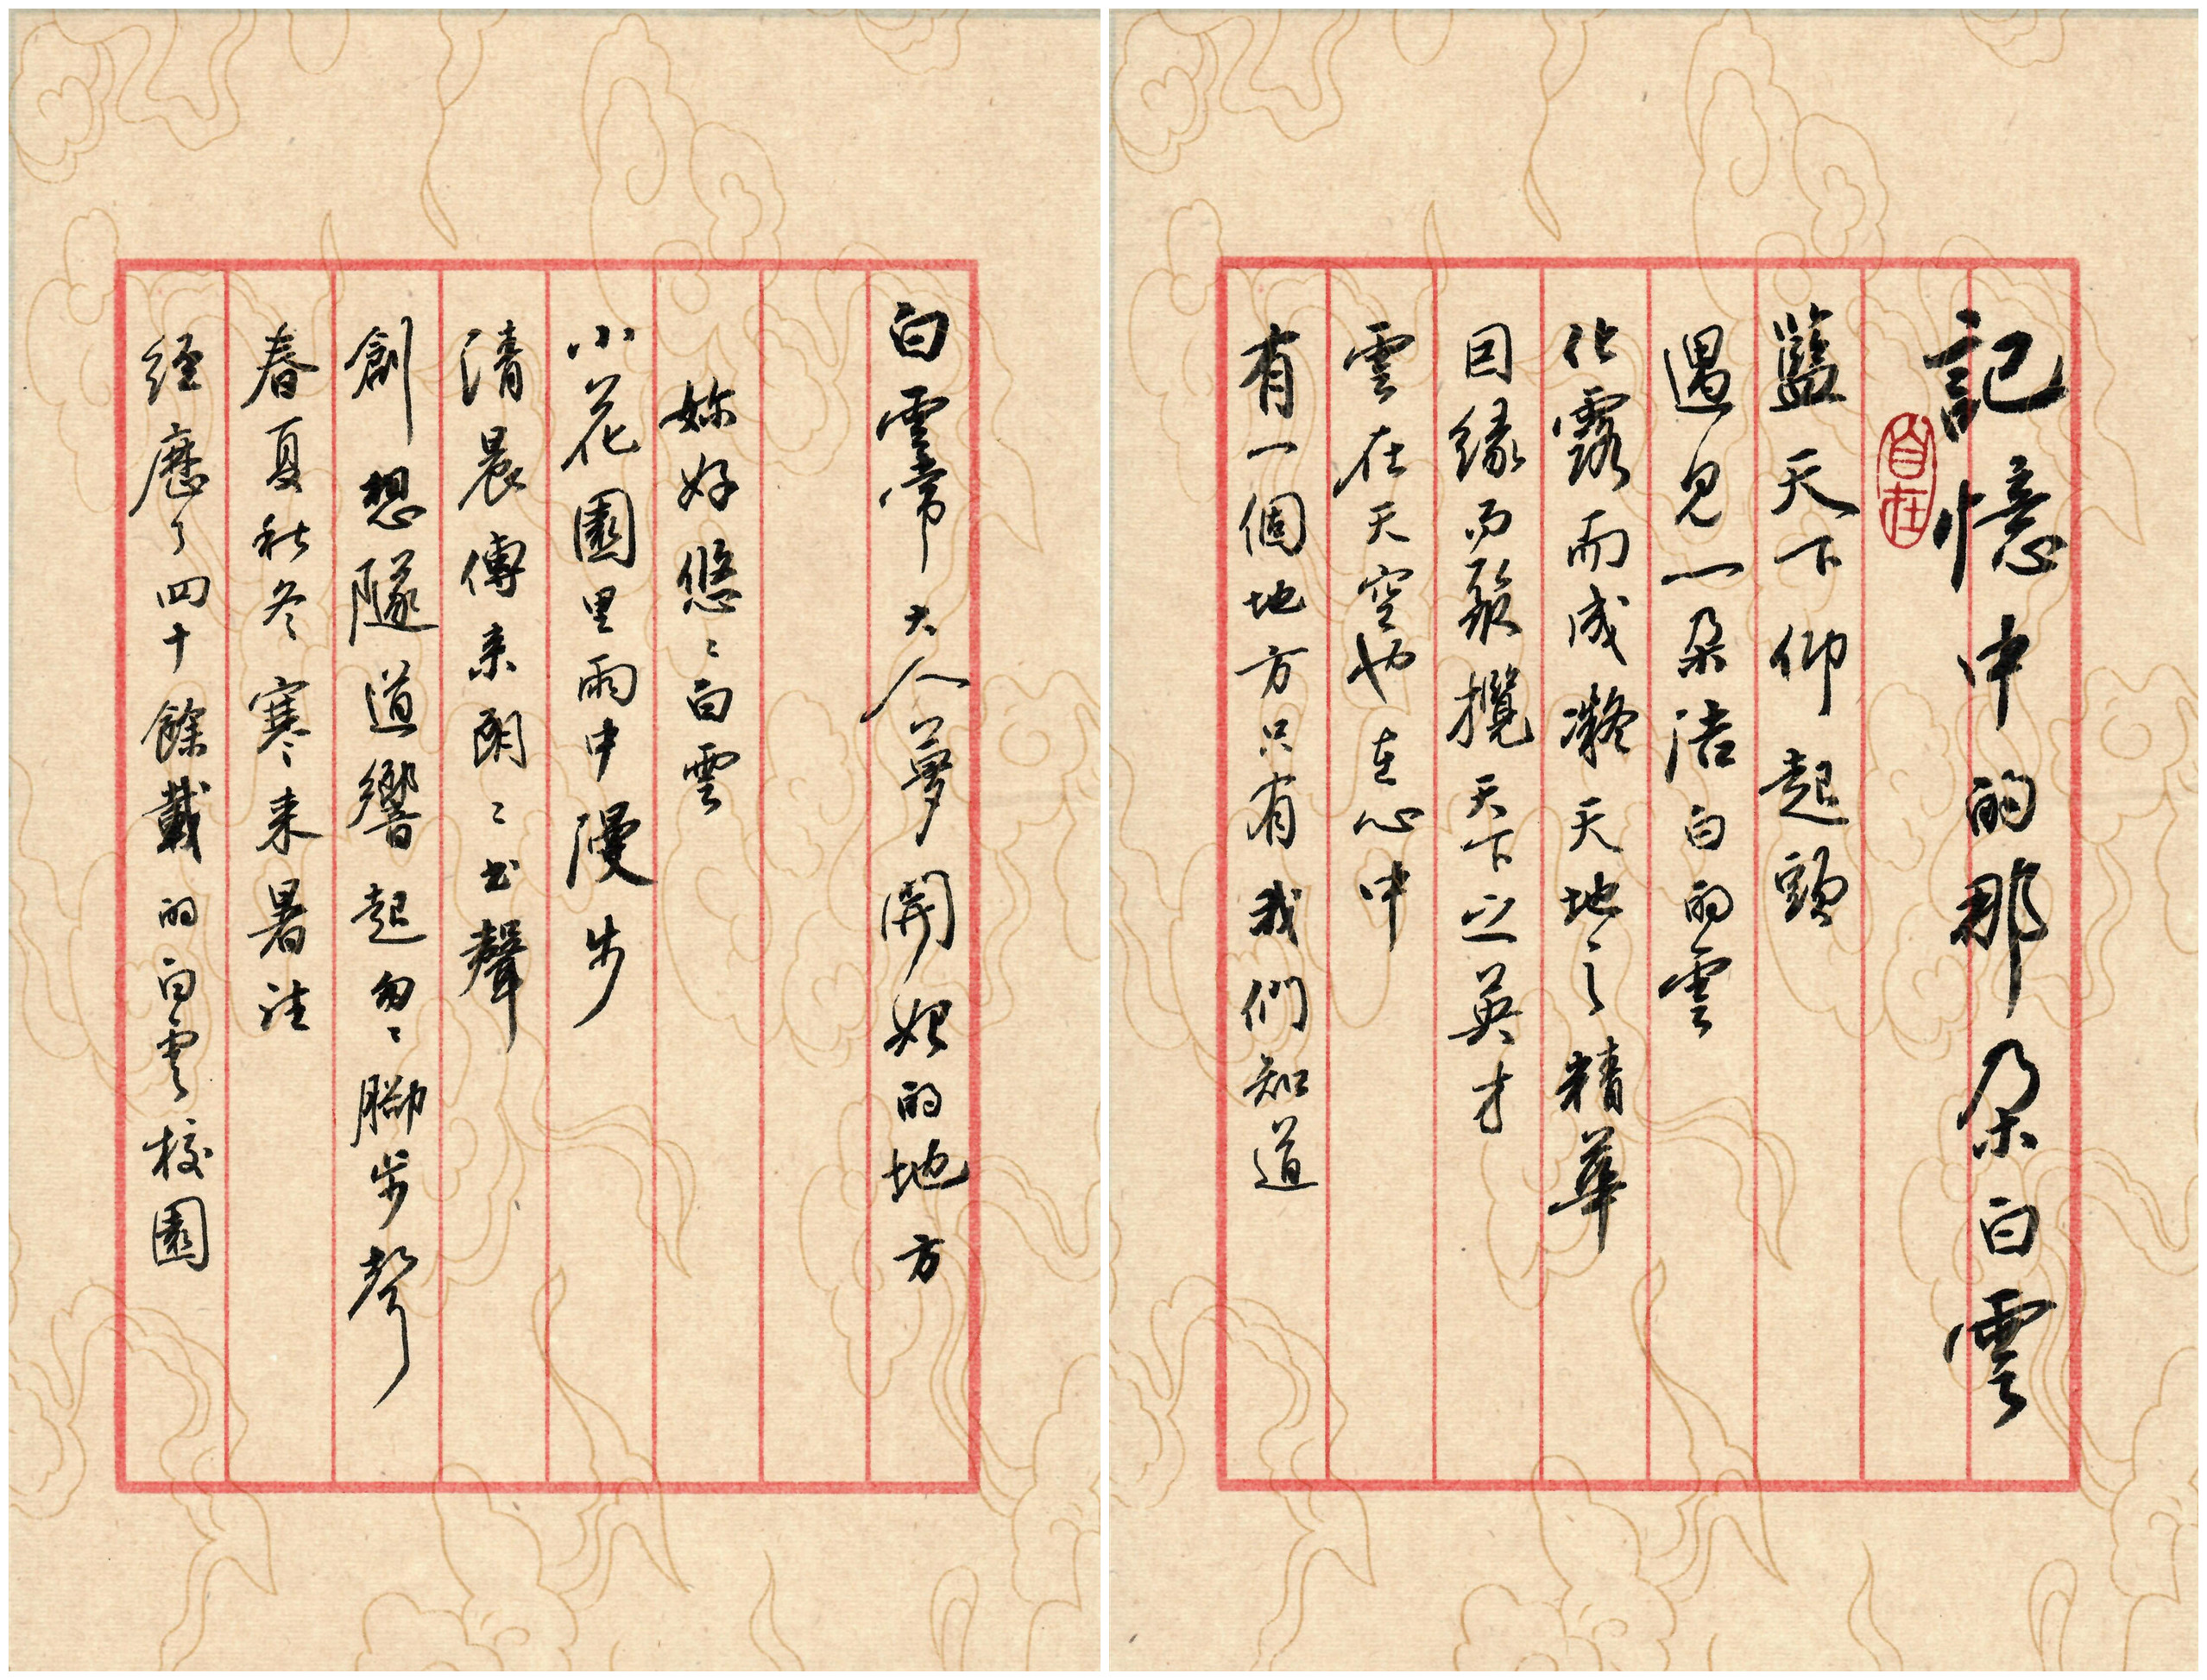 記憶中的那朵白雲
自在
藍天下仰起頭
遇見一朵洁白的雲
化露而成凝天地之精華
因緣而聚攬天下之英才
雲在天空也在心中
有一個地方只有我們知道
白雲常大人夢開始的地方
妳好悠〻白雲
小花園里雨中漫步
清晨傳来朗〻书聲
創想隧道響起匆〻腳步声
春夏秋冬寒来暑往
经歷了四十餘載的白雲校園